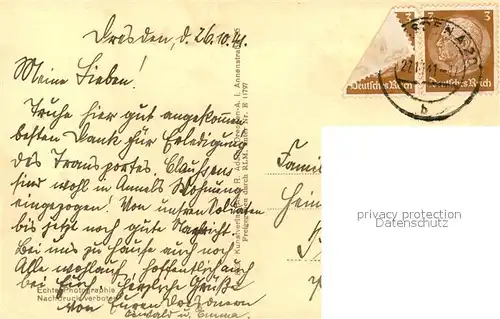 Dresden, d. 26.10.41.
Meine Lieben!
Truhe hier gut angekommen
besten Dank für Erledigung
des Transportes. Claussen
sind wohl in Annels Wohnung
eingezogen! Von unsren Soldaten
bis jetzt noch gute Nachricht
Bei uns zu Hause auch noch
Alle wohlauf, hoffentlich auch
bei Euch. Herzliche Grüße
von Euren Dresdnern
Oswald u. Emma.
Echte Photographie
Nachdruck verboten
Deutsches Reich
3
Deutsches Reich
3
Famil
Hein
privacy protection
Datenschutz